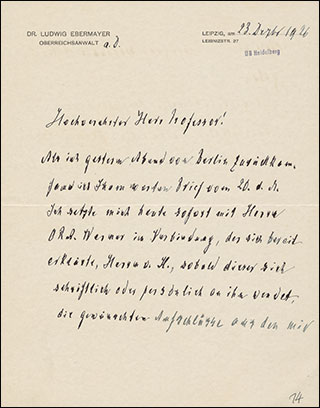 DR. LUDWIG EBERMAYER
OBERREICHSANWALT a. D.
LEIPZIG, am 23. Dezbr. 1926
LEIBNIZSTR. 27
UB Heidelberg
Hochverehrter Herr Professor!
Als ich gestern Abend von Berlin zurückkam,
fand ich Ihren werten Brief vom 20. d. M.
Ich setzte mich heute sofort mit Herrn
ORA. Werner in Verbindung, der sich bereit
erklärte, Herrn v. H., sobald dieser sich
schriftlich oder persönlich an ihn wendet,
die gewünschten Aufschlüsse aus den mir
74